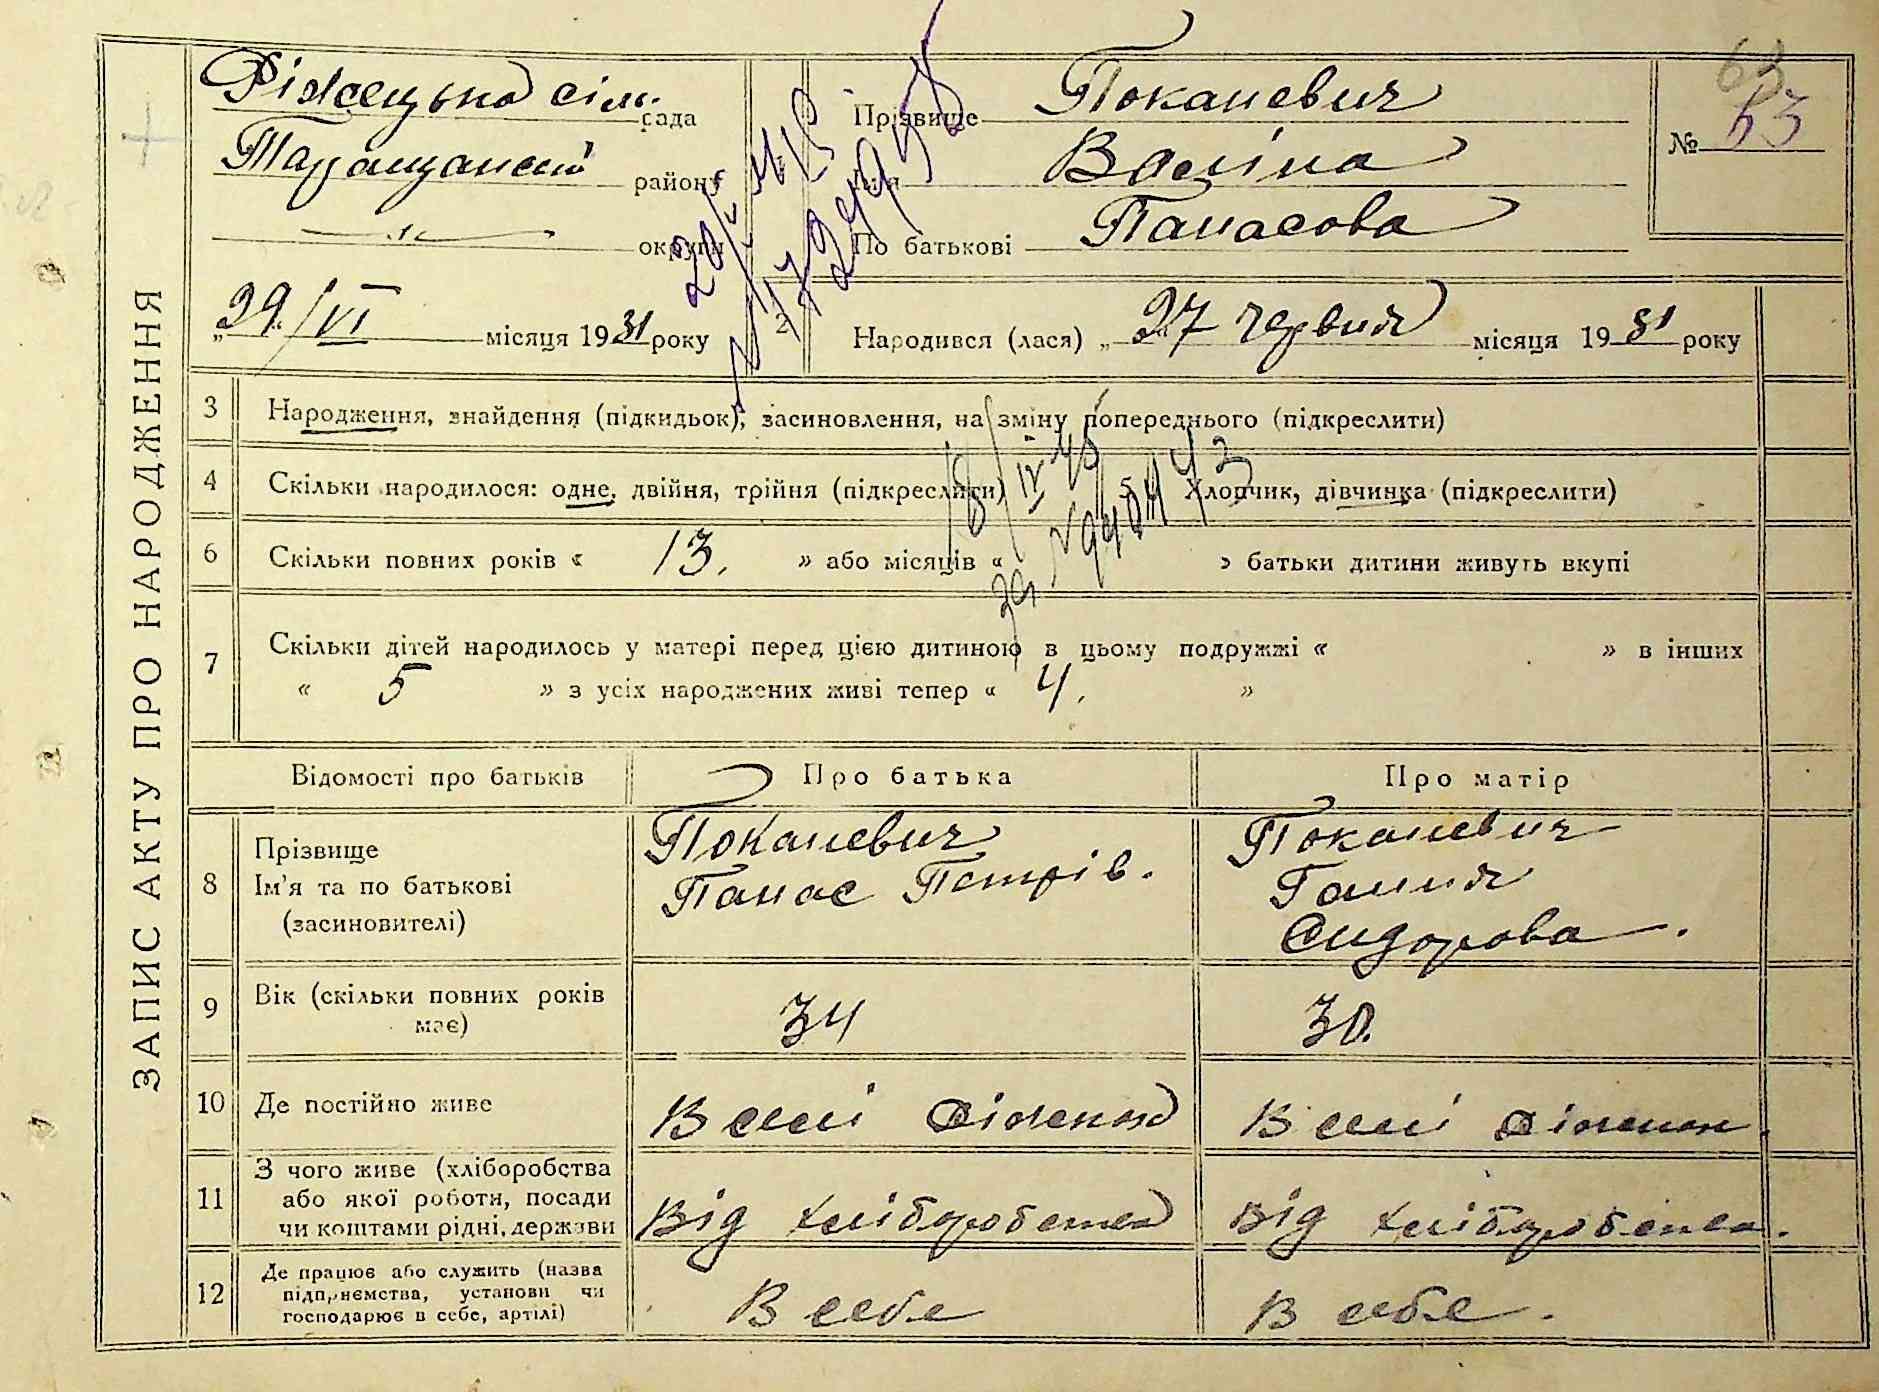 ЗАПИС АКТУ ПРО НАРОДЖЕННЯ
сіль. рада
Таращанський району
—"— округи
„29/VI місяця 1931 року
Прізвище Поканевич
Ім'я
По батькові Панасова
№ 63
63
2 Народився (лася) „27 червня місяця 1931 року
3 Народження, знайдення (підкидьок), засиновлення, на зміну попереднього (підкреслити)
4 Скільки народилося: одне, двійня, трійня (підкреслити) 5 Хлопчик, дівчинка (підкреслити)
6 Скільки повних років « 13. » або місяців « » батьки дитини живуть вкупі
7 Скільки дітей народилось у матері перед цією дитиною в цьому подружжі « » в інших
« 5 » з усіх народжених живі тепер « 4. »
Відомості про батьків Про батька Про матір
8 Прізвище Ім'я та по батькові (засиновителі)
Поканевич Панас Петрів.
Поканевич Ганна Сидорова.
9 Вік (скільки повних років має) 34 30.
10 Де постійно живе В селі В селі
11 З чого живе (хліборобства або якої роботи, посади чи коштами рідні, держави
Від хліборобства Від хліборобства.
12 Де працює або служить (назва підприємства, установи чи господарює в себе, артілі)
В себе В себе.